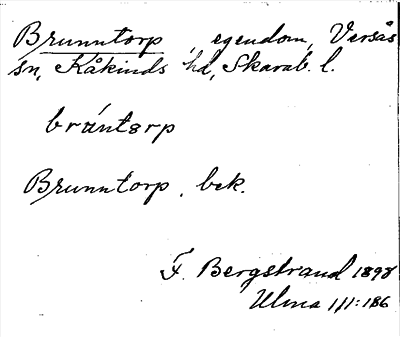 Brunntorp, egendom, Versås
sn, Kåkinds hd, Skarab. l.
brúntorp
Brunntorp, bek.
F. Bergstrand 1898
Ulma 111:186